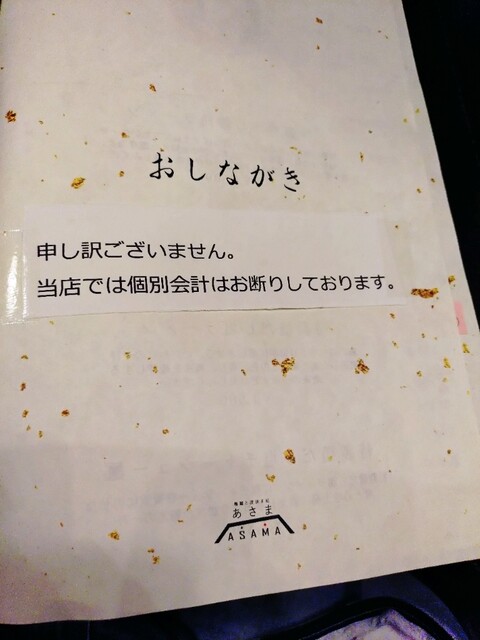 おしながき
申し訳ございません。
当店では個別会計はお断りしております。
あさま
ASAMA